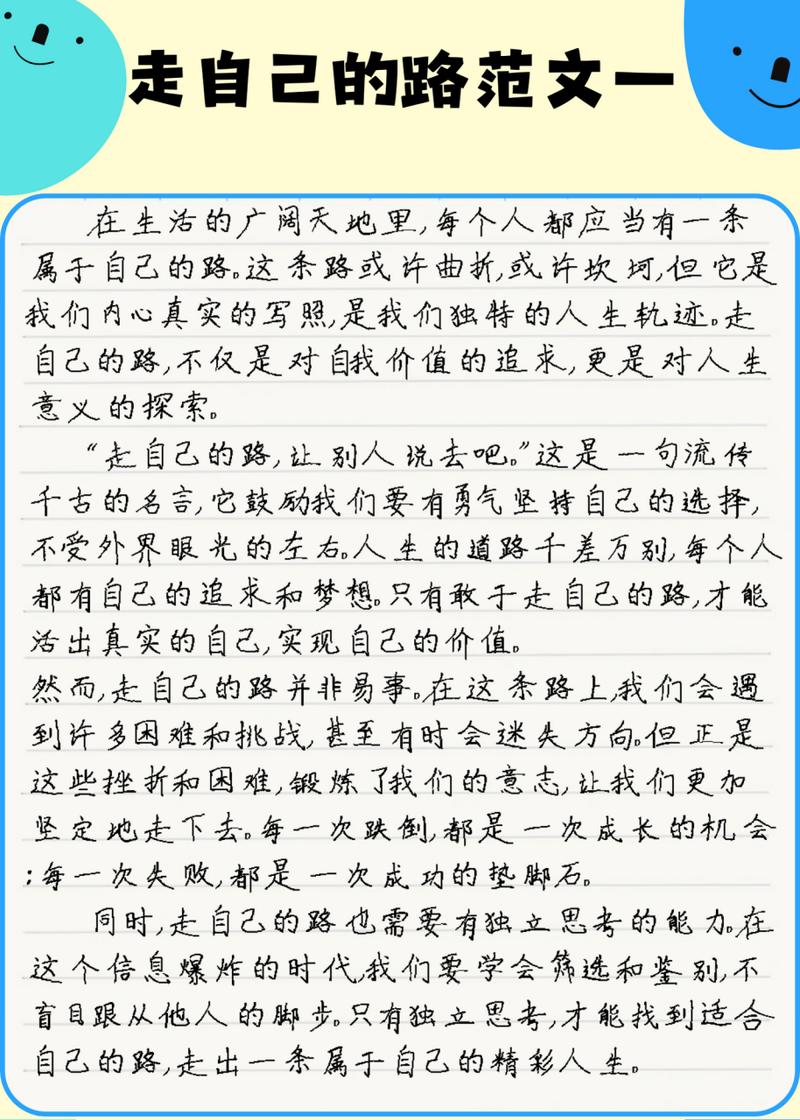 走自己的路范文一
在生活的广阔天地里,每个人都应当有一条
属于自己的路。这条路或许曲折,或许坎坷,但它是
我们内心真实的写照,是我们独特的人生轨迹。走
自己的路,不仅是对自我价值的追求,更是对人生
意义的探索。
“走自己的路,让别人说去吧。”这是一句流传
千古的名言,它鼓励我们要有勇气坚持自己的选择,
不受外界眼光的左右。人生的道路千差万别,每个人
都有自己的追求和梦想。只有敢于走自己的路,才能
活出真实的自己,实现自己的价值。
然而,走自己的路并非易事。在这条路上,我们会遇
到许多困难和挑战,甚至有时会迷失方向。但正是
这些挫折和困难,锻炼了我们的意志,让我们更加
坚定地走下去。每一次跌倒,都是一次成长的机会
;每一次失败,都是一次成功的垫脚石。
同时,走自己的路也需要有独立思考的能力。在
这个信息爆炸的时代,我们要学会筛选和鉴别,不
盲目跟从他人的脚步。只有独立思考,才能找到适合
自己的路,走出一条属于自己的精彩人生。